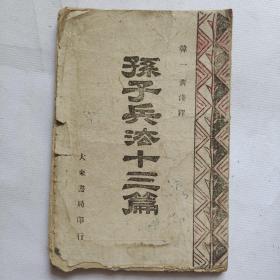 韓一青淺釋
孫子兵法十三篇
大東書局印行